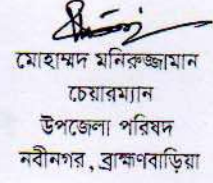 মোহাম্মদ মনিরুজ্জামান
চেয়ারম্যান
উপজেলা পরিষদ
নবীনগর, ব্রাহ্মণবাড়িয়া